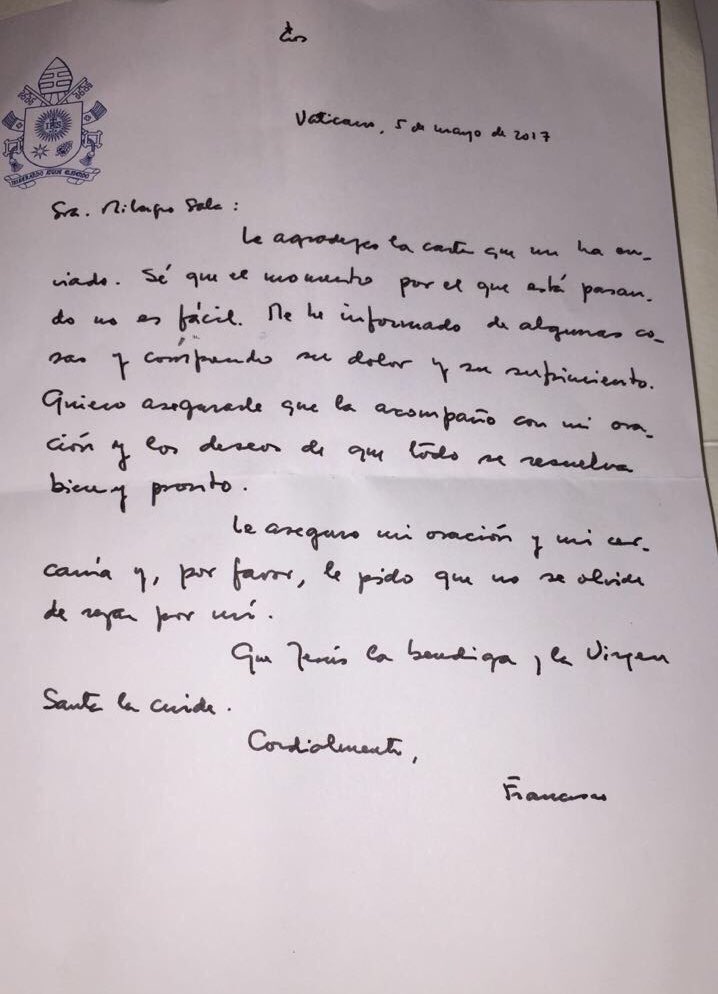 Vaticano, 5 de mayo de 2017
IHS
MISERANDO ATQUE ELIGENDO
Sra. Milagro Sala:
Le agradezco la carta que me ha en-
viado. Sé que el momento por el que está pasan-
do no es fácil. Me he informado de algunas co-
sas y comprendo su dolor y su sufrimiento.
Quiero asegurarle que la acompaño con mi ora-
ción y los deseos de que todo se resuelva
bien y pronto.
Le aseguro mi oración y mi cer-
canía y, por favor, le pido que no se olvide
de rezar por mí.
Que Jesús la bendiga y la Virgen
Santa la cuide.
Cordialmente,
Francisco